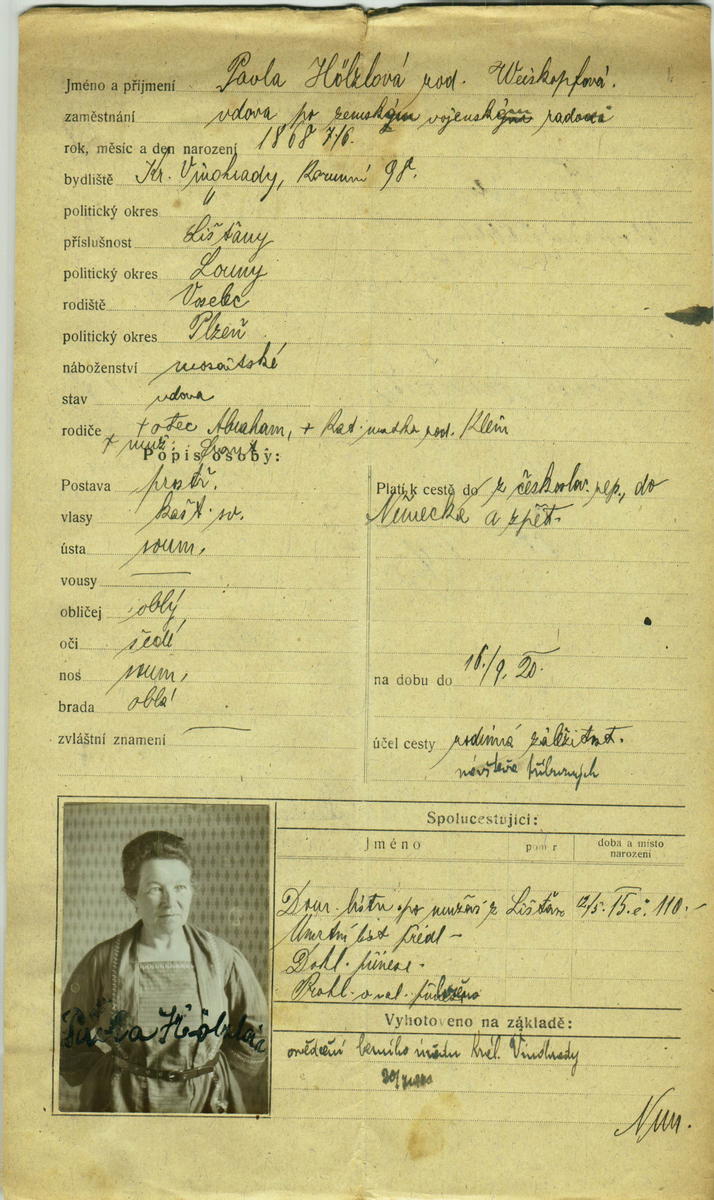 Jméno a příjmení Pavla Hölzlová rod. Weiskopfová.
zaměstnání vdova po zemském vojenském radovi
rok, měsíc a den narození 1868 7/6.
bydliště Kr. Vinohrady, Korunní 98.
politický okres "
příslušnost Lišťany
politický okres Louny
rodiště Voselec
politický okres Plzeň
náboženství mosaitské
stav vdova
rodiče + otec Abraham, + Kat. matka rod. Klein
+ muž.
Popis osoby:
Postava prostř.
vlasy kašt. sv.
ústa soum.
vousy —
obličej oblý
oči šedé
nos soum.
brada oblá
zvláštní znamení —
Platí k cestě do z českoslov. rep., do
Německa a zpět.
na dobu do 16./9. 20.
účel cesty rodinná záležitost.
návštěva příbuzných
Spolucestující:
Jméno poměr doba a místo narození
Dom. listu po muži z Lišťan 12/5. 15. č. 110.-
Úmrtní list předl -
Dokl. přinese -
Prohl. o nal.
Vyhotoveno na základě:
osvědčení berního úřadu král. Vinohrady
Pavla Hölzlová